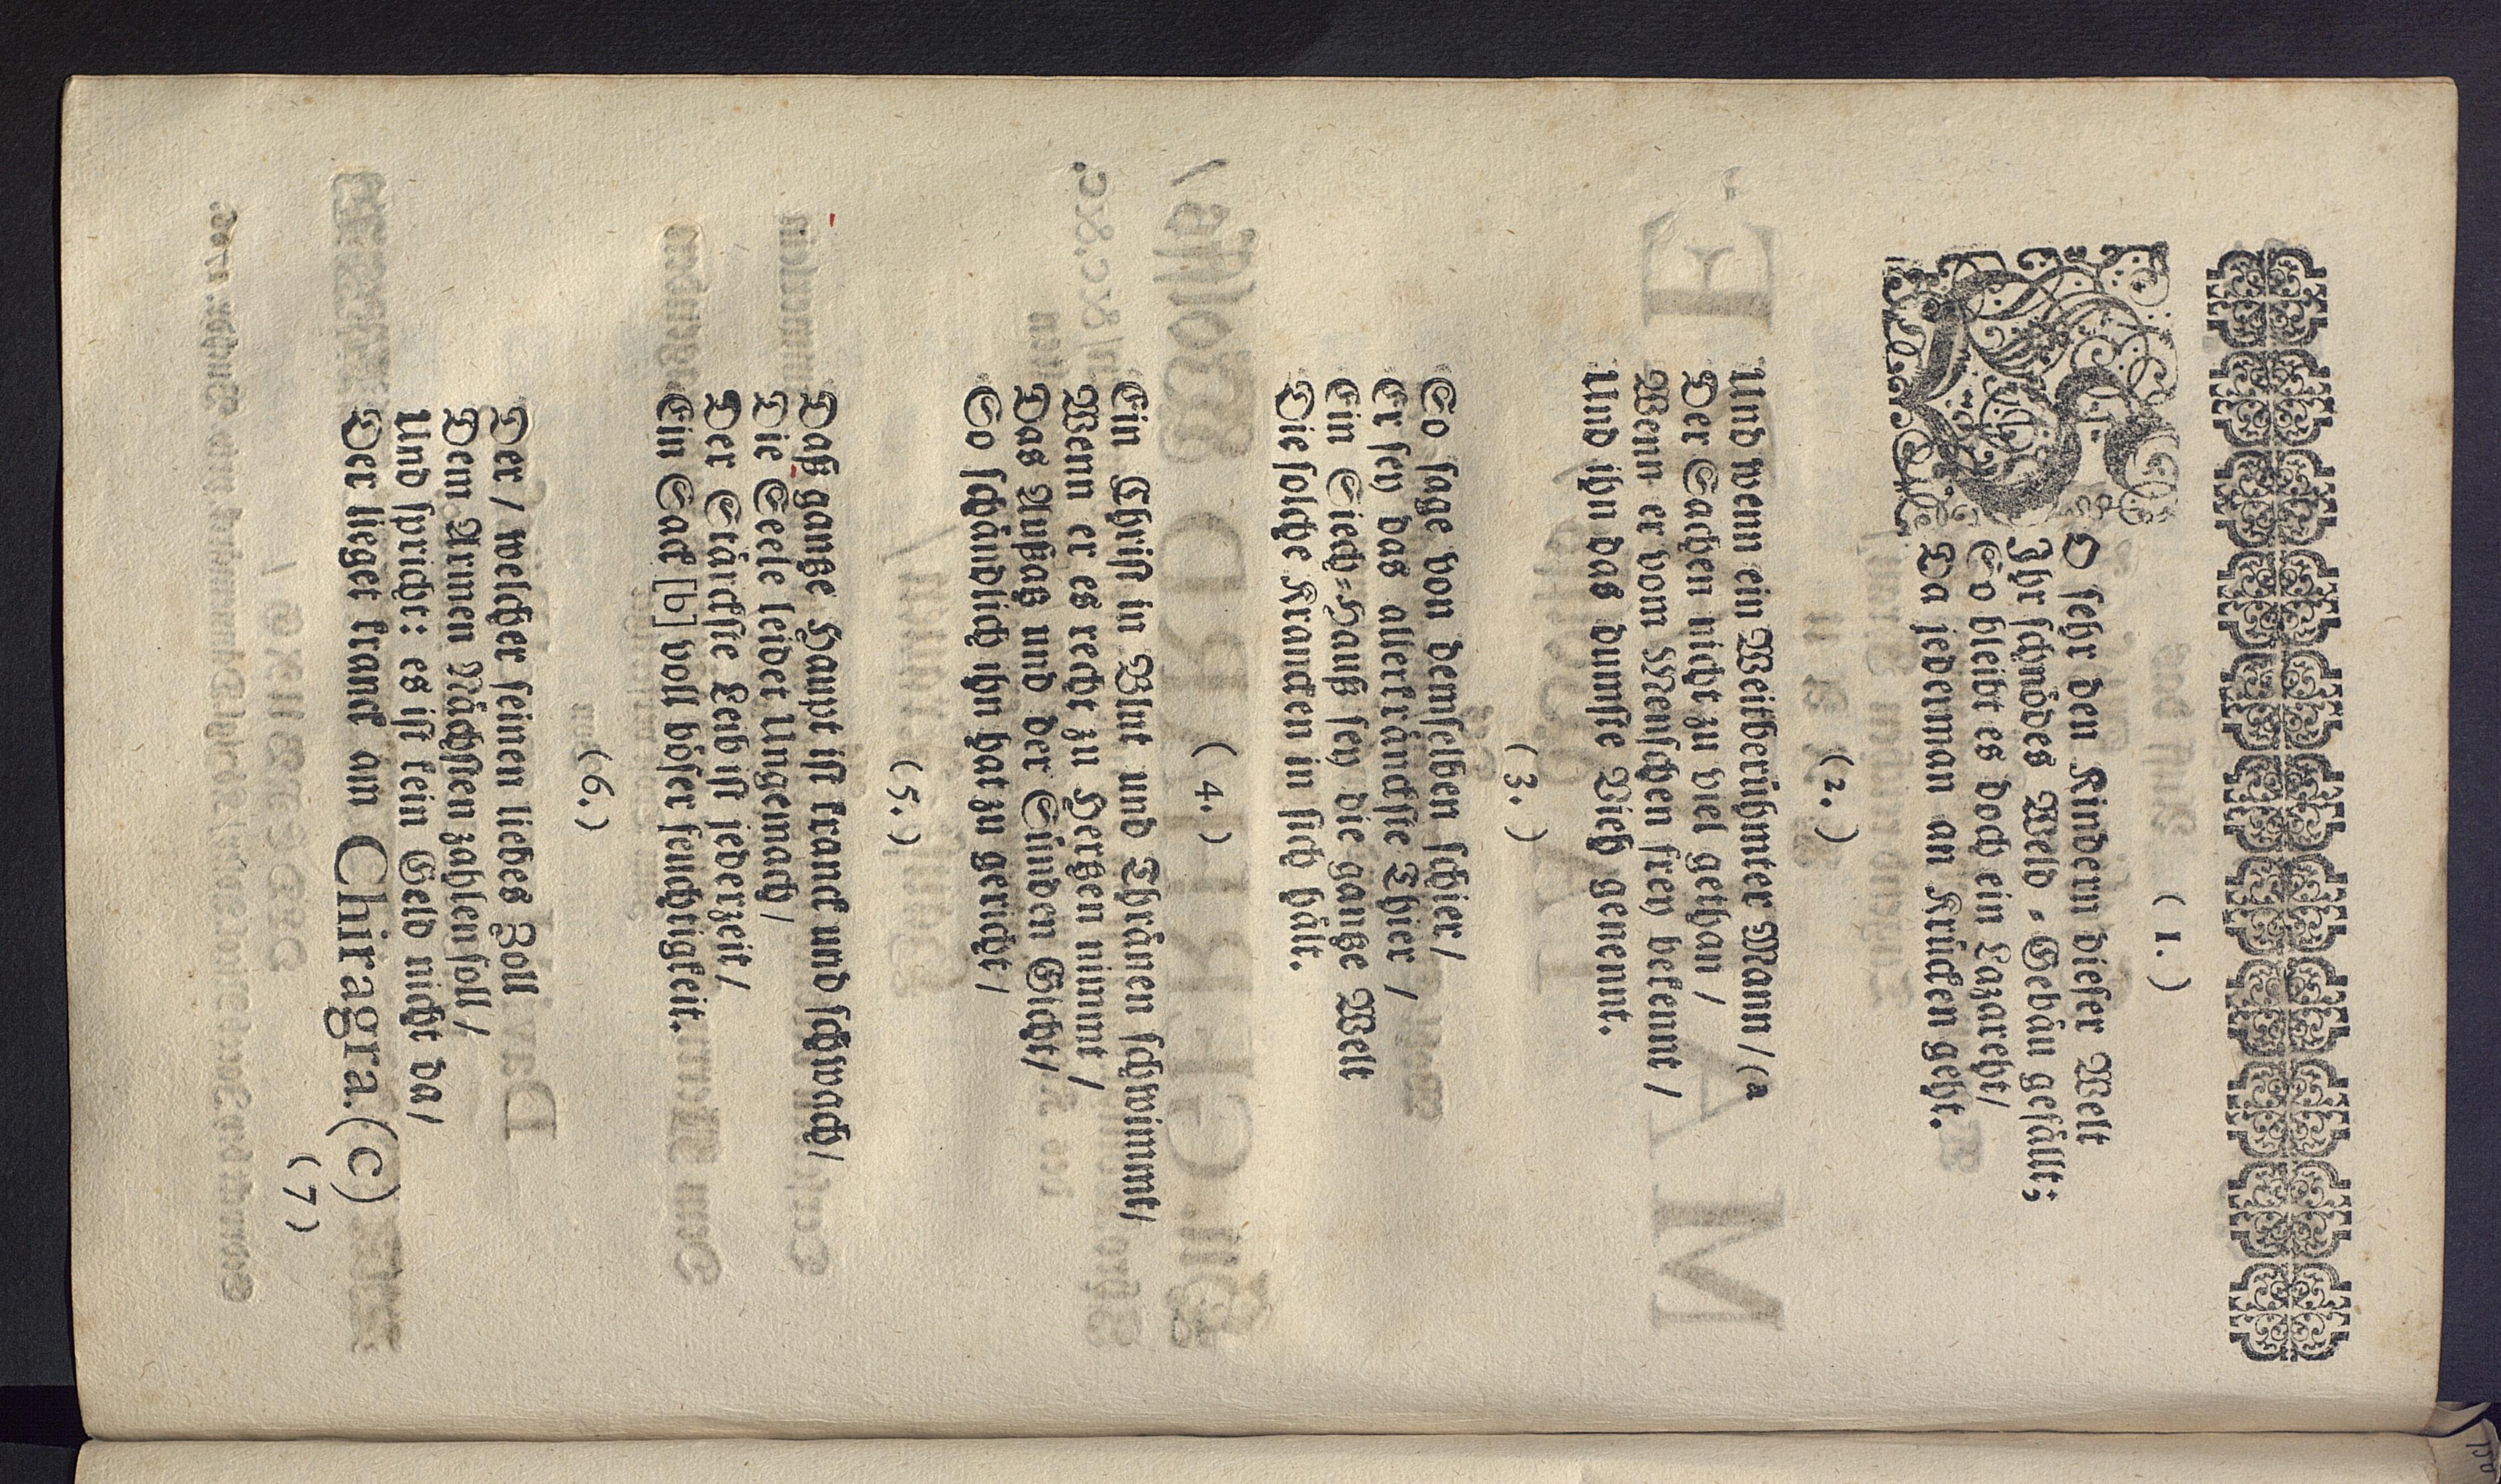 ( 1. )
SO sehr den Kindern dieser Welt
Ihr schnödes Welb = Gebäu gefällt;
So bleibt es doch ein Lazareht/
Da jederman an Krücken geht.
( 2. )
Und wenn ein Weitberühmter Mann / (a
Der Sachen nicht zu viel gethan /
Wenn er vom Menschen frey bekennt /
Und ihn das dümste Vieh genennt.
( 3. )
So sage von denselben schier /
Er sey das allerkränckste Thier /
Ein Siech=Hauß sey die gantze Welt
Die solche Krancken in sich hält.
( 4. )
Ein Christ in Blut und Thränen schwimmt/
Wenn er es recht zu Hertzen nimmt /
Das Außaß und der Sünden Gicht/
So schändlich ihn hat zu gericht /
( 5. )
Daß gantze Haupt ist kranck und schwach/
Die Seele leidet Ungemach/
Der Stärckste Leib ist jederzeit/
Ein Sack [b] voll böser feuchtigkeit.
( 6. )
Der / welcher seinen liebes Zoll
Dem Armen Nächsten zahlen soll /
Und spricht: es ist kein Geld nicht da/
Der lieget kranck am Chiragra. (c)
( 7 )